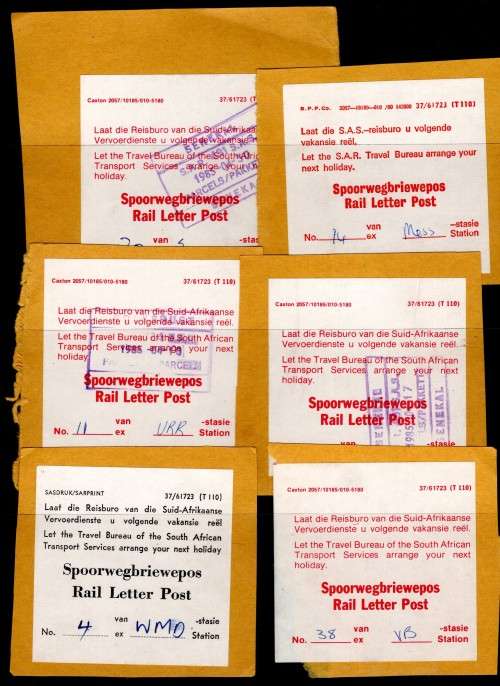 Caxton 2057/10185/010-5180 37/61723 (T
Laat die Reisburo van die Suid-Afrika
Vervoerdienste u volgende vakansie
Let the Travel Bureau of the South Afri
Transport Services arrange your
holiday.
Spoorwegbriewepos
Rail Letter Post
van -stasie
B.P.P.Co. 37/61723 (T 110)
Laat die S.A.S.-reisburo u volgende
vakansie reël.
Let the S.A.R. Travel Bureau arrange your
next holiday.
Spoorwegbriewepos
Rail Letter Post
van -stasie
No. 14 ex Moss Station
Caxton 2057/10185/010-5180 37/61723 (T 110)
Laat die Reisburo van die Suid-Afrikaanse
Vervoerdienste u volgende vakansie reël.
Let the Travel Bureau of the South African
Transport Services arrange your next
holiday
1985
Spoorwegbriewepos
Rail Letter Post
van -stasie
No. 11 ex VRR Station
Caxton 2057/10185/010-5180 37/61723 (T 110)
Laat die Reisburo van die Suid-Afrikaanse
Vervoerdienste u volgende vakansie reël.
Let the Travel Bureau of the South African
Transport Services arrange your next
holiday.
Spoorwegbriewepos
Rail Letter Post
SENEKAL
SASDRUK/SARPRINT 37/61723 (T 110)
Laat die Reisburo van die Suid-Afrikaanse
Vervoerdienste u volgende vakansie reël
Let the Travel Bureau of the South African
Transport Services arrange your next holiday
Spoorwegbriewepos
Rail Letter Post
van -stasie
No. 4 ex WMD Station
Caxton 2057/10185/010-5180 37/61723 (T 110)
Laat die Reisburo van die Suid-Afrikaanse
Vervoerdienste u volgende vakansie reël.
Let the Travel Bureau of the South African
Transport Services arrange your next
holiday.
Spoorwegbriewepos
Rail Letter Post
van -stasie
No. 38 ex VB Station